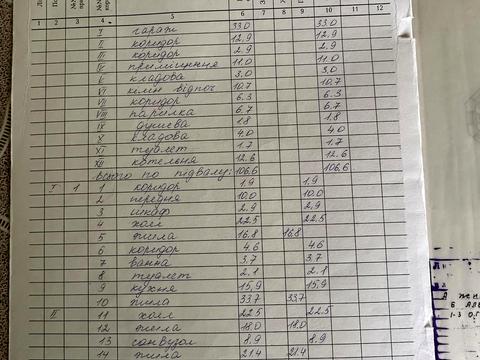 1 2 3 4 5 6 7 8 9 10 11 12
I гараж 33.0 33.0
II коридор 12,9 12,9
III коридор 2.9 2.9
IV приміщення 11,0 11,0
V кладова 3,0 3,0
VI кімн. відпоч. 10,7 10,7
VII коридор 6.3 6.3
VIII парилка 6.7 6.7
IX душева 1.8 1.8
X кладова 4.0 4.0
XI туалет 1.7 1.7
XII котельня 12.6 12.6
всього по підвалу: 106,6 106,6
I 1 1 коридор 1.9 1.9
2 передня 10,0 10,0
3 шкаф 2,9 2,9
4 холл 22.5 22.5
5 жила 16,8 16,8
6 коридор 4.6 4.6
7 ванна 3.7 3.7
8 туалет 2.1 2.1
9 кухня 15,9 15,9
10 жила 33.7 33.7
II 11 холл 22.5 22.5
12 жила 18.0 18.0
13 санвузол 8,9 8,9
14 жила 21.4 21.4